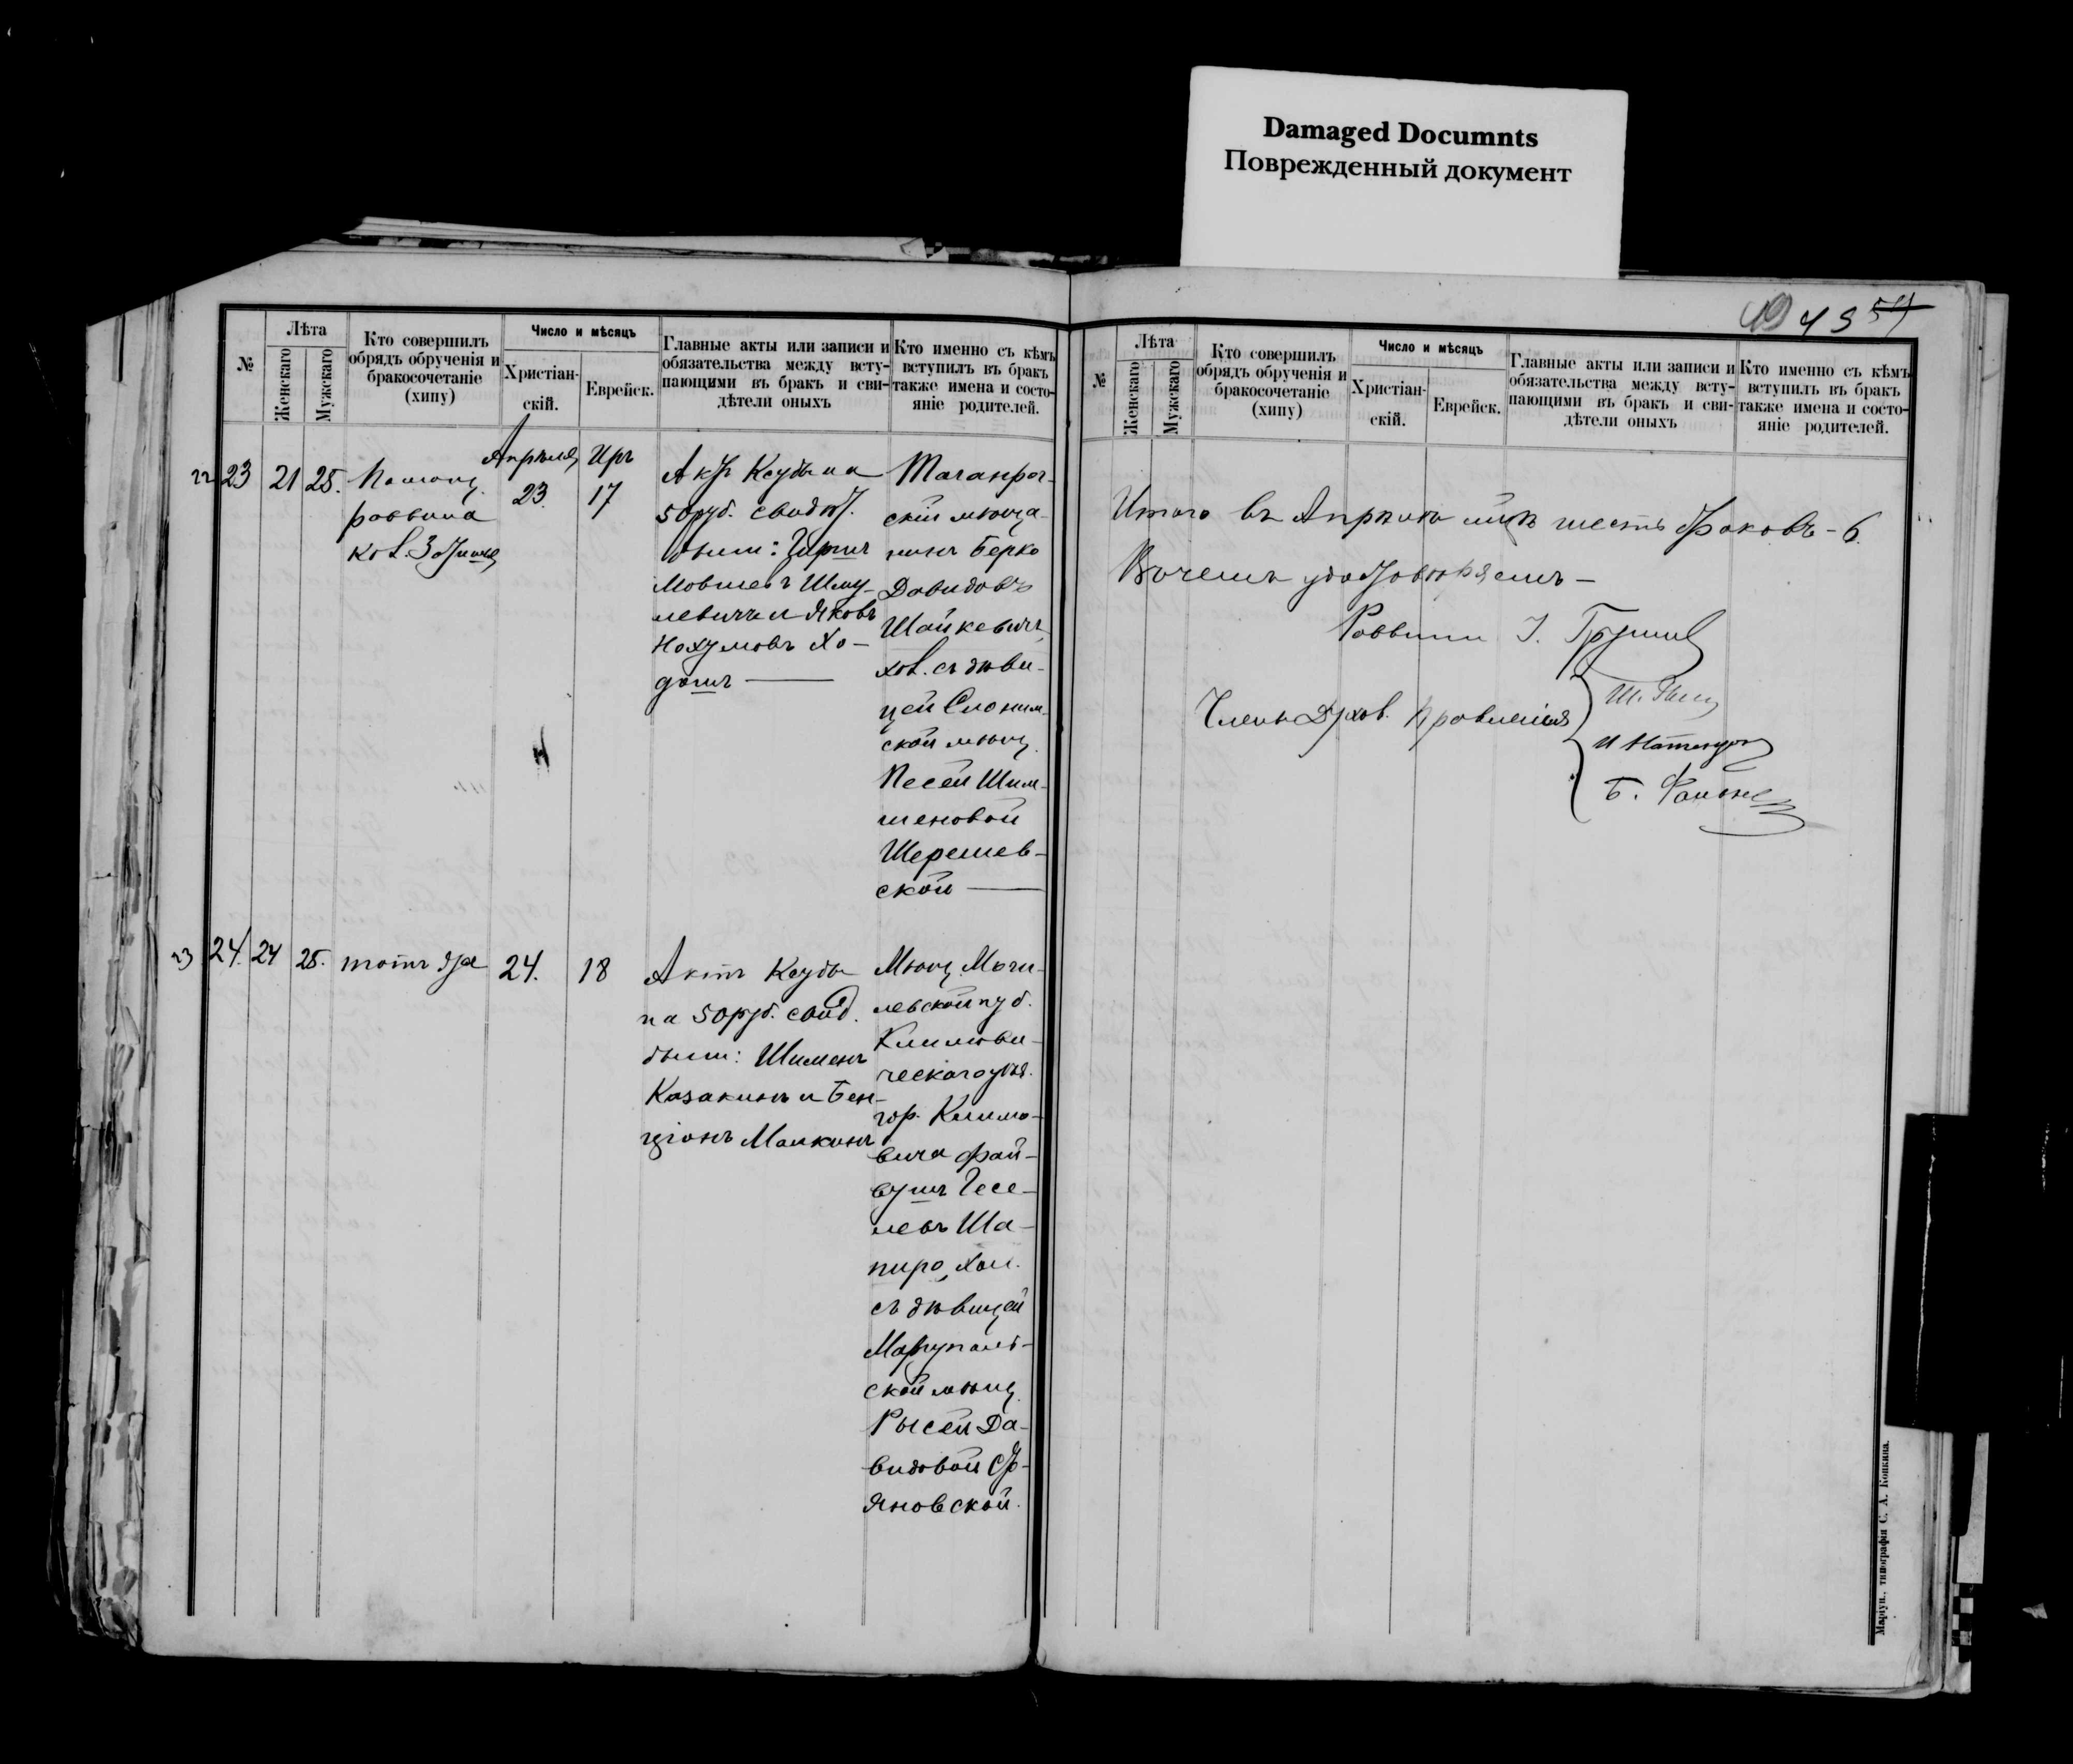 Damaged Documnts
Поврежденный документ
49 43 54
№
Лѣта
Женскаго
Мужскаго
Кто совершилъ
обрядъ обрученія и
бракосочетаніе
(хипу)
Число и мѣсяцъ
Христіан-
скій.
Еврейск.
Главные акты или записи и
обязательства между всту-
пающими въ бракъ и сви-
дѣтели оныхъ
Кто именно съ кѣмъ
вступилъ въ бракъ
также имена и состо-
яніе родителей.
22 23 21 25.
Помощ.
раввина
Апрѣля
23
Иръ
17
Актъ Ксубы на
50 руб. свидѣт.
были: Гиршъ
Мовшевъ Шму-
левичъ и Яковъ
Нохумовъ Хо-
дошъ
Таганрог-
скій мѣща-
нинъ Берко
Давидовъ
Шайкевичъ
хол. съ дѣви-
цей Слоним-
ской мѣщ.
Песей Шим-
шеновой
Шерешев-
ской
23 24. 24 25. тотъ же 24. 18
Актъ Ксубы
на 50 руб. свид.
были: Шименъ
Казакинъ и Бен-
ціонъ Малкинъ
Мѣщ. Моги-
левской губ.
Климови-
ческаго уѣз.
гор. Климо-
вича Фай-
вушъ Гесе-
левъ Ша-
пиро, хол.
съ дѣвицей
Маріуполь-
ской мѣщ.
Рысей Да-
видовой
яновской.
№
Лѣта
Женскаго
Мужскаго
Кто совершилъ
обрядъ обрученія и
бракосочетаніе
(хипу)
Число и мѣсяцъ
Христіан-
скій.
Еврейск.
Главные акты или записи и
обязательства между всту-
пающими въ бракъ и сви-
дѣтели оныхъ
Кто именно съ кѣмъ
вступилъ въ бракъ
также имена и состо-
яніе родителей.
Итого въ Апрѣлѣ м-цѣ шесть браковъ - 6.
В чемъ удостовѣряемъ -
Раввинъ
Члены Духов. Правленія
Маріуп., типографія С. А. Копкина.